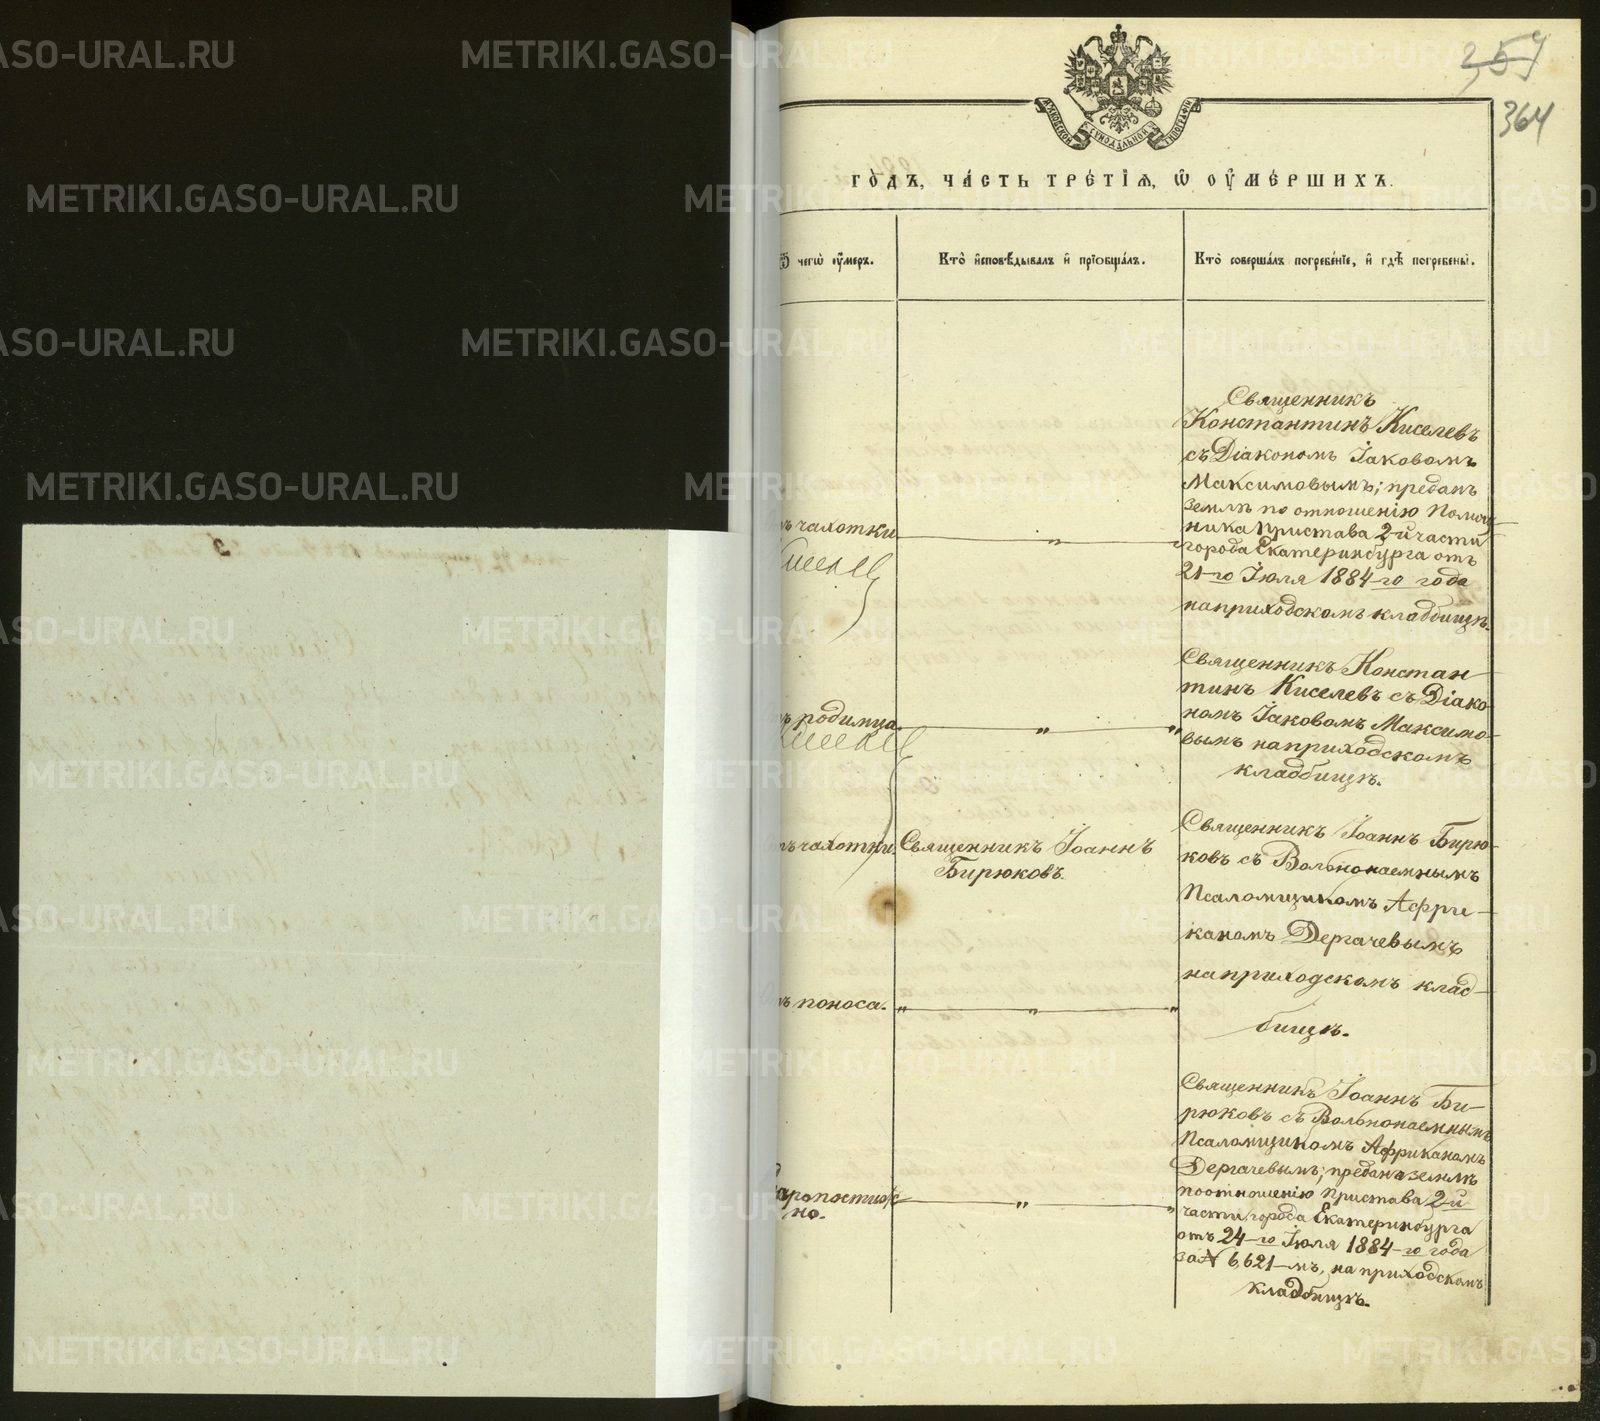 357
364
ГОДЪ, ЧАСТЬ ТРЕТІЯ, Ѡ ОУМЕРШИХЪ.
чегѡ оумеръ.
Кто исповѣдывалъ и пріобщалъ.
Кто совершалъ погребеніе, и гдѣ погребены.
Священникъ
Константинъ Киселевъ
съ Діакономъ Іаковомъ
Максимовымъ; преданъ
землѣ по отношенію Помощ-
ника Пристава 2-й части
города Екатеринбурга отъ
21-го Іюля 1884-го года
на приходскомъ кладбищѣ.
чахотки
„
Священникъ Констан-
тинъ Киселевъ съ Діако-
номъ Іаковомъ Максимо-
вымъ на приходскомъ
кладбищѣ.
родимца
„ „
чахотки.
Священникъ Іоаннъ
Бирюковъ.
Священникъ Іоаннъ Бирю-
ковъ съ Вольнонаемнымъ
Псаломщикомъ Афри-
каномъ Дергачевымъ
на приходскомъ клад-
бищѣ.
поноса.
„ „ „
Священникъ Іоаннъ Би-
рюковъ съ Вольнонаемнымъ
Псаломщикомъ Африканомъ
Дергачевымъ; преданъ землѣ
по отношенію Пристава 2-й
части города Екатеринбурга
отъ 24-го Іюля 1884-го года
за № 6,621-мъ, на приходскомъ
кладбищѣ.
но.
„ „
METRIKI.GASO-URAL.RU